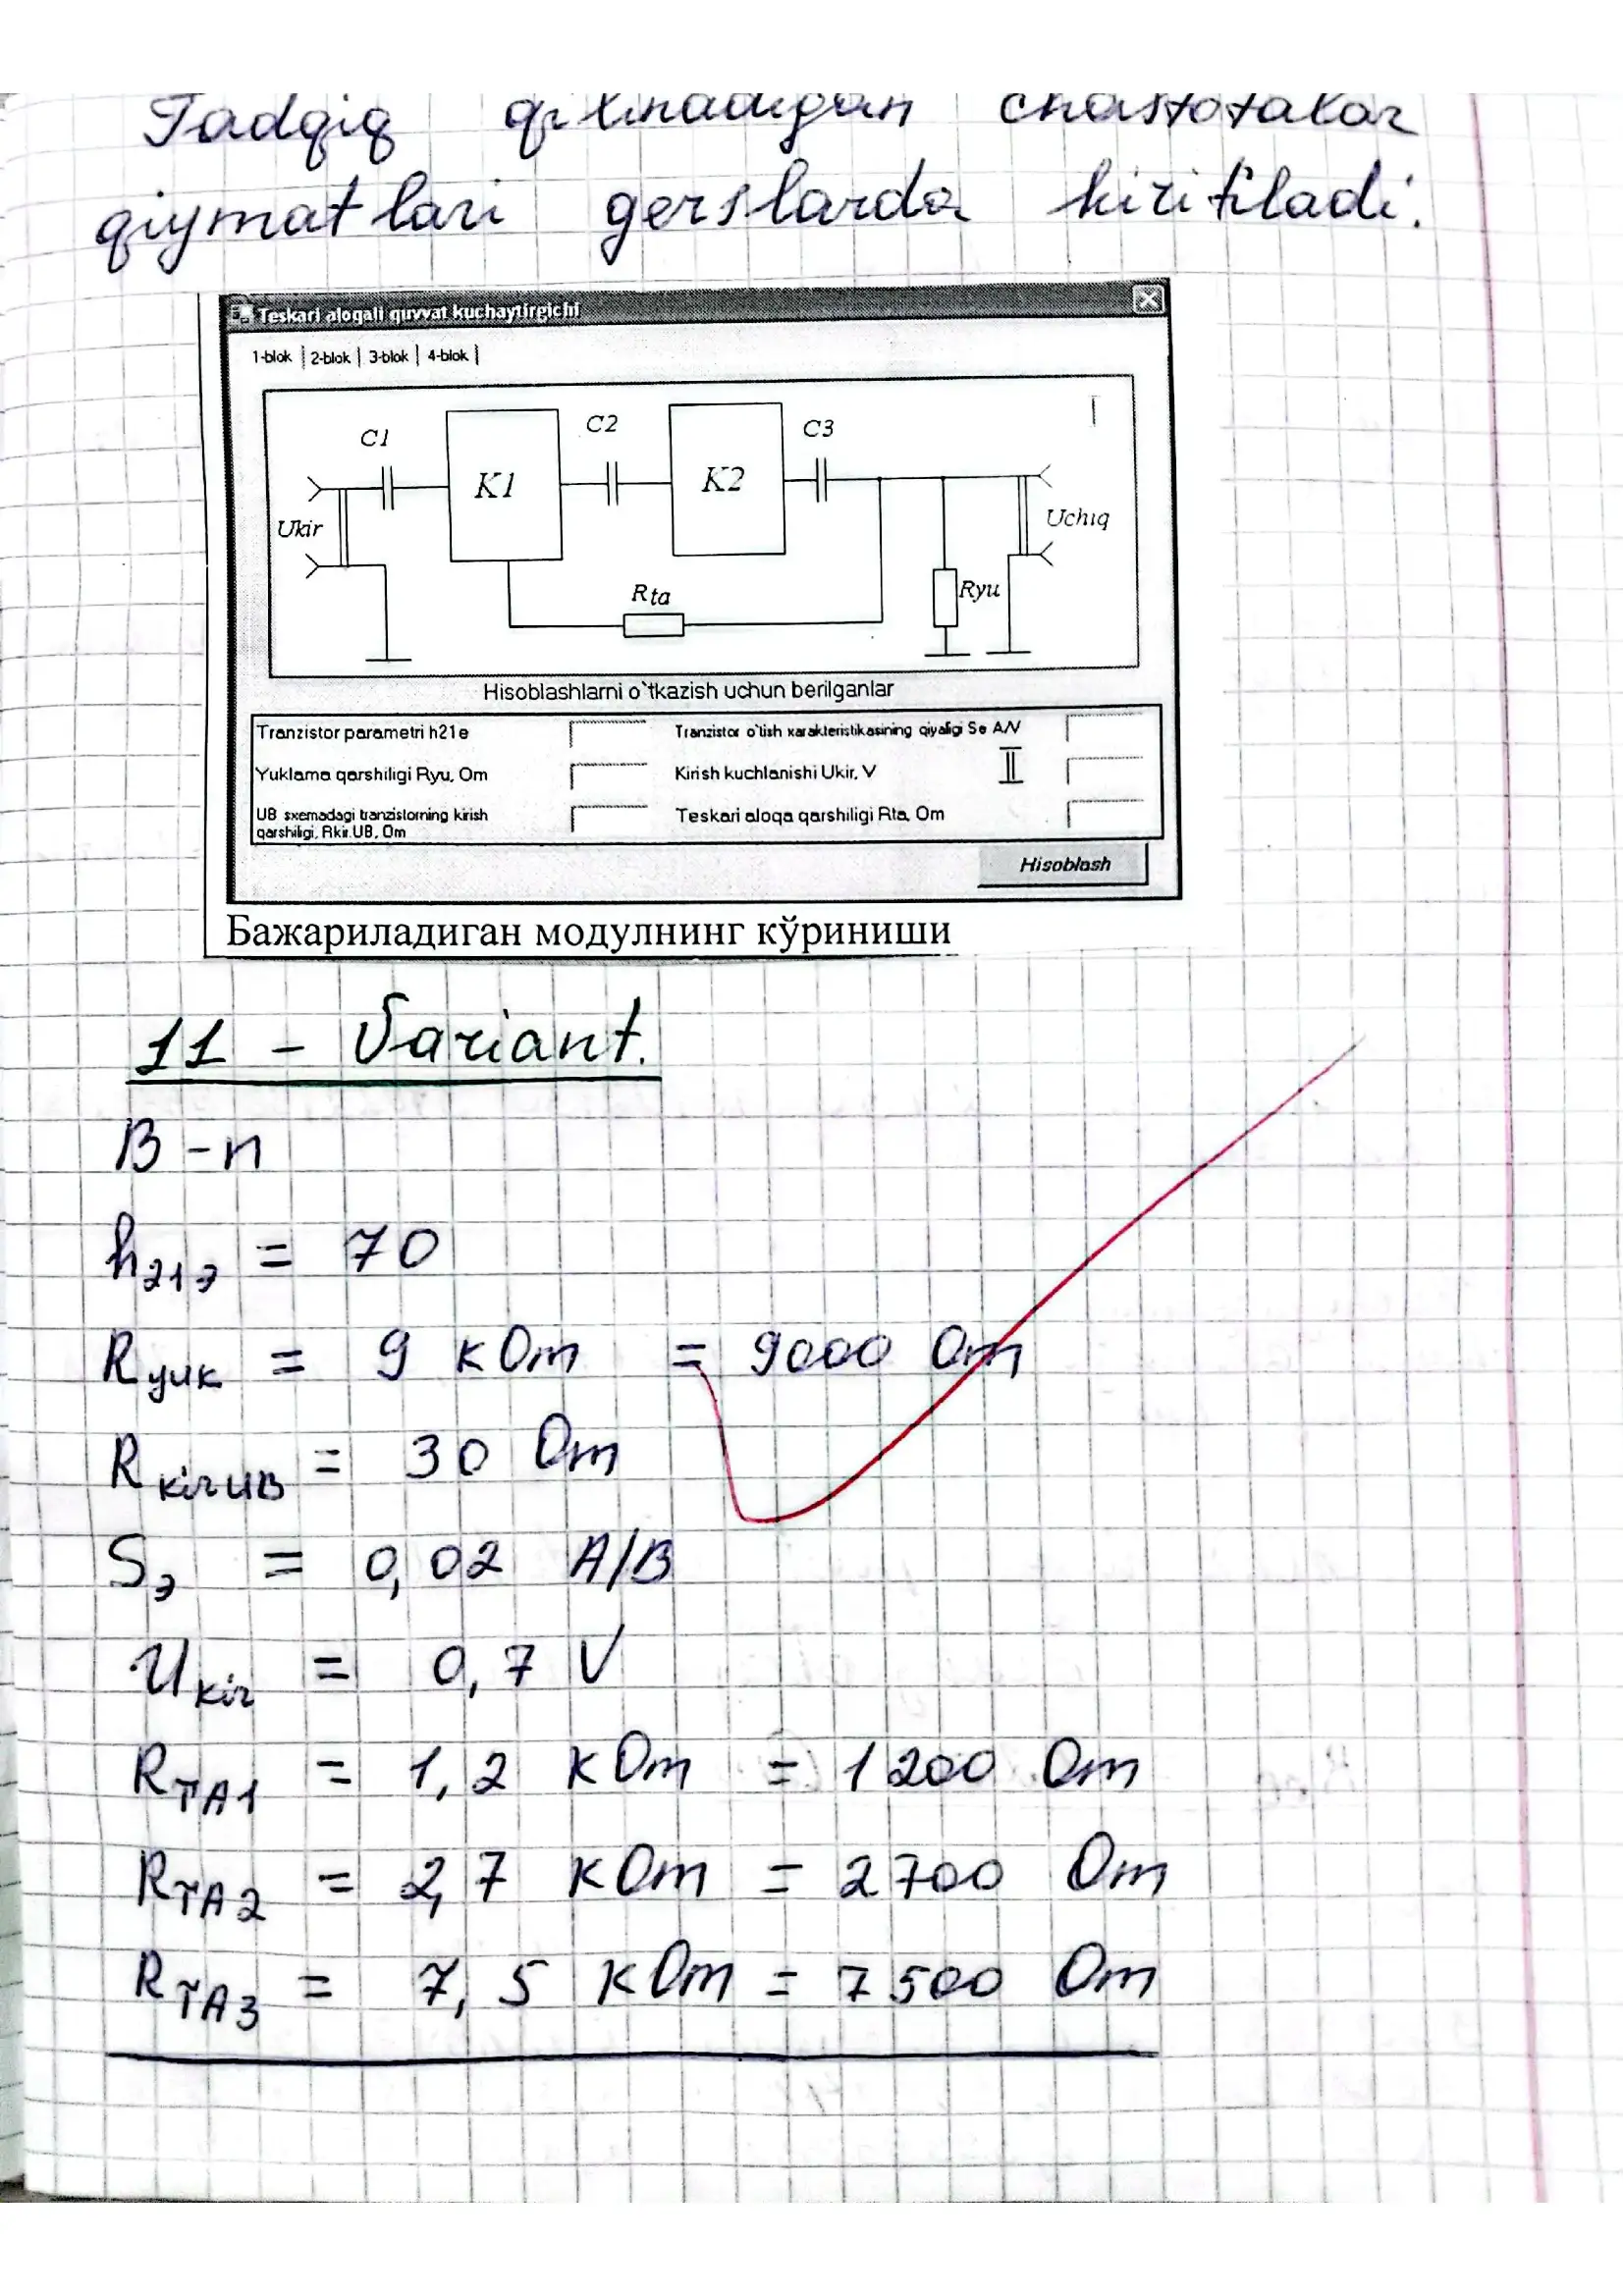 Tadqiq qilinadigan chastotalar
qiymatlari gerslarda kiritiladi.
Teskari aloqali quvvat kuchaytirgichi
1-blok | 2-blok | 3-blok | 4-blok |
C1 K1 C2 K2 C3 I
Ukir Uchiq
Rta Ryu
Hisoblashlarni o`tkazish uchun berilganlar
Tranzistor parametri h21e
Tranzistor o`tish xarakteristikasining qiyaligi Se A/V
Yuklama qarshiligi Ryu, Om
Kirish kuchlanishi Ukir, V
II
UB sxemadagi tranzistorning kirish
qarshiligi, Rkir.UB, Om
Teskari aloqa qarshiligi Rta, Om
Hisoblash
Бажариладиган модулнинг кўриниши
11 - Variant.
B - n
h21э = 70
Ryuk = 9 kOm = 9000 Om
RkirUB = 30 Om
Sэ = 0,02 A/B
Ukir = 0,7 V
RTA1 = 1,2 kOm = 1200 Om
RTA2 = 2,7 kOm = 2700 Om
RTA3 = 7,5 kOm = 7500 Om